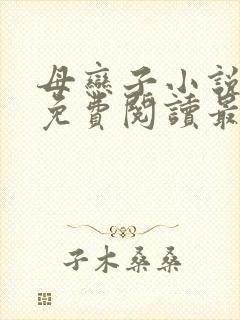 母戀子小說
免費閱讀最
子木桑桑